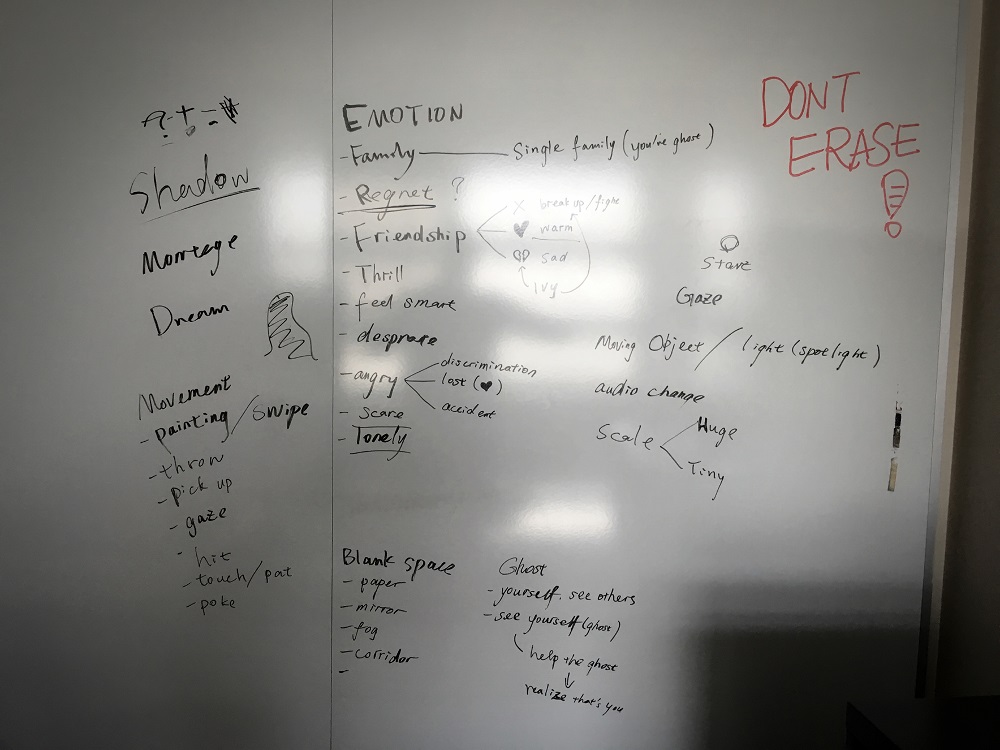 Shadow
Montage
Dream
Movement
- painting / swipe
- throw
- pick up
- gaze
- hit
- touch/pat
- poke
EMOTION
- Family — Single family (you're ghost)
- Regret ?
- Friendship
X break up/fight
♥ warm
sad
Ivy
- Thrill
- feel smart
- desprate
- angry
discrimination
lost (♥)
accident
- scare
- lonely
Blank space
- paper
- mirror
- fog
- corridor
-
Ghost
- yourself. see others
- see yourself (ghost)
help the ghost
↓
realize that's you
DONT
ERASE!
Gaze
Moving Object / light (spotlight)
audio change
Scale
Huge
Tiny